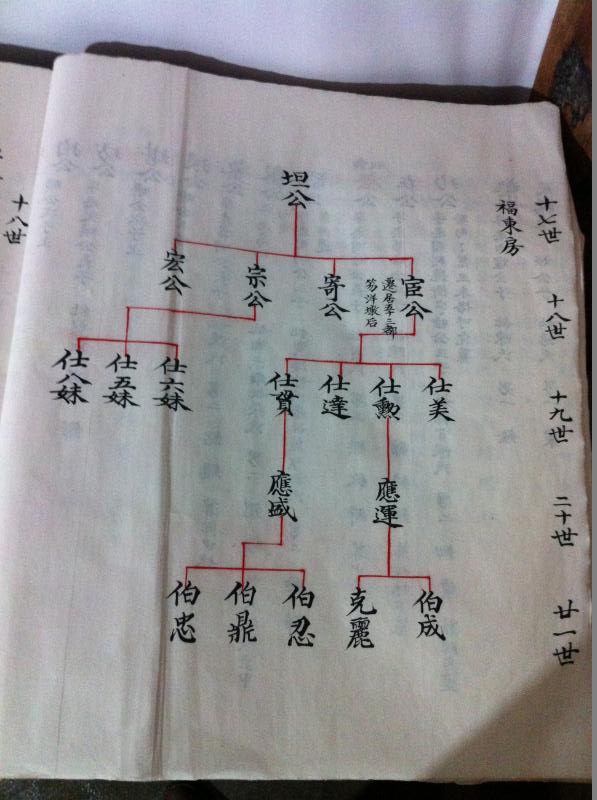 十七世
福東房
十八世
十九世
二十世
廿一世
坦公
宦公
遷居季三都
茐洋墩后
寄公
宗公
宏公
仕美
仕勲
仕達
仕貫
仕六妹
仕五妹
仕八妹
應運
應盛
伯成
克麗
伯忍
伯鼎
伯忠
十八世